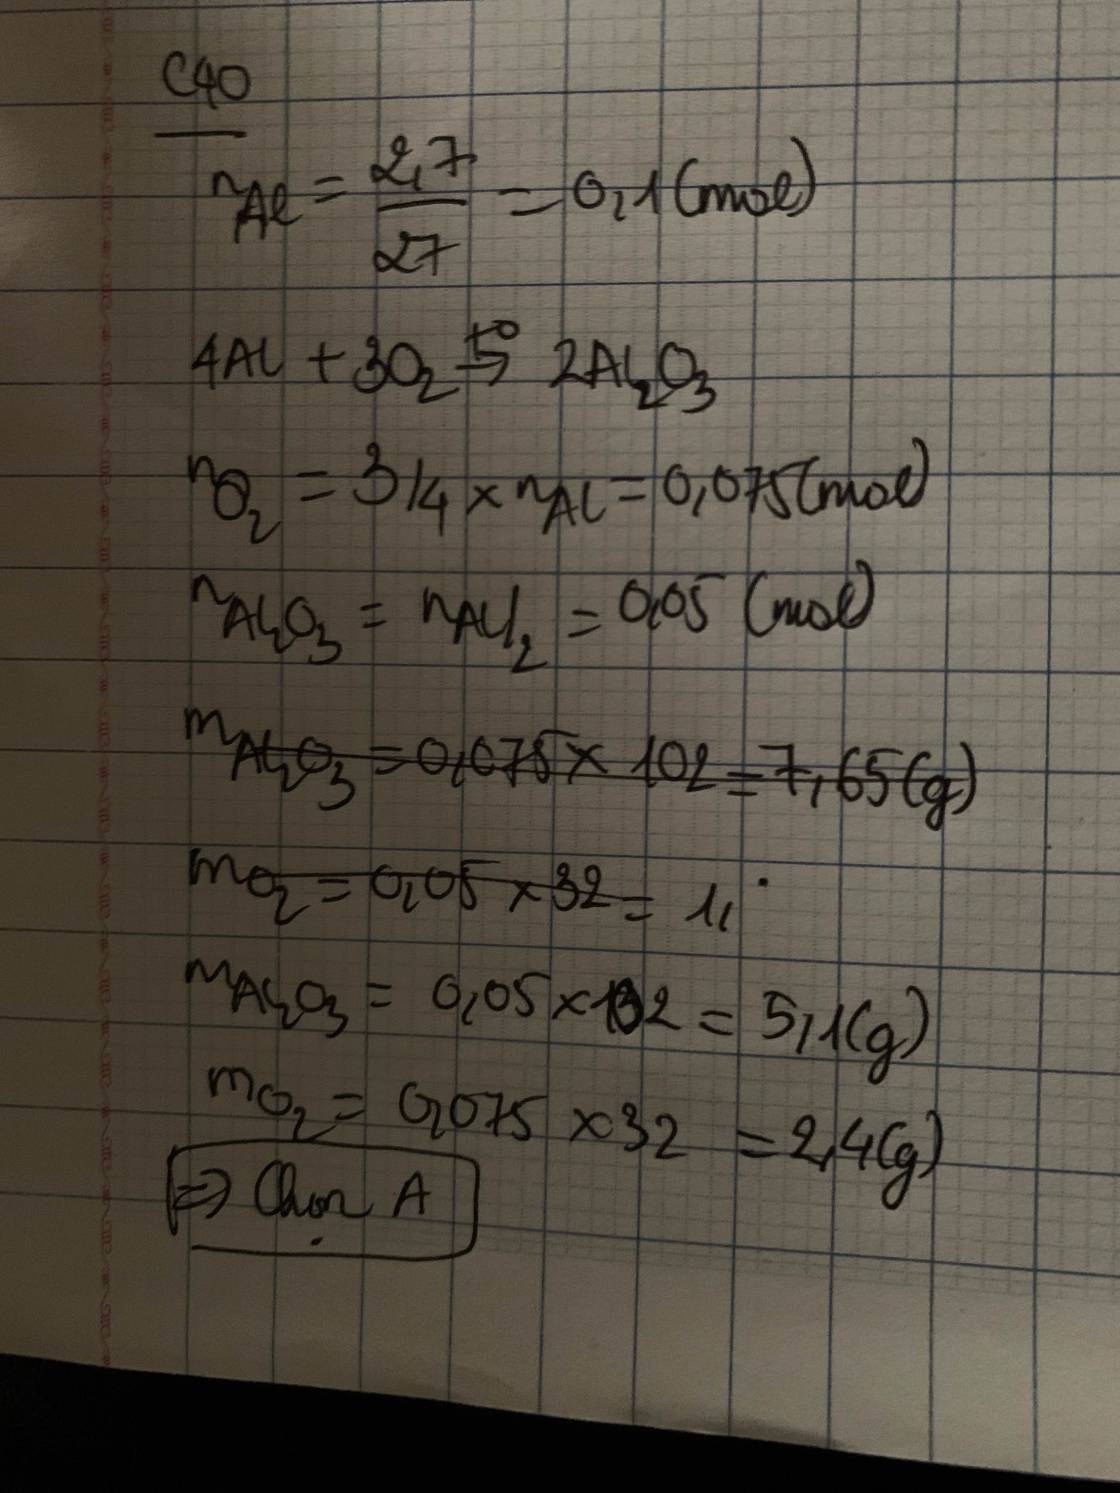 C40
nAl = 2,7/27 = 0,1 (mol)
4Al + 3O2 t°→ 2Al2O3
nO2 = 3/4 × nAl = 0,075 (mol)
nAl2O3 = nAl/2 = 0,05 (mol)
mAl2O3 = 0,075 × 102 = 7,65 (g)
mO2 = 0,05 × 32 = 1,
mAl2O3 = 0,05 × 102 = 5,1 (g)
mO2 = 0,075 × 32 = 2,4 (g)
=> Chọn A